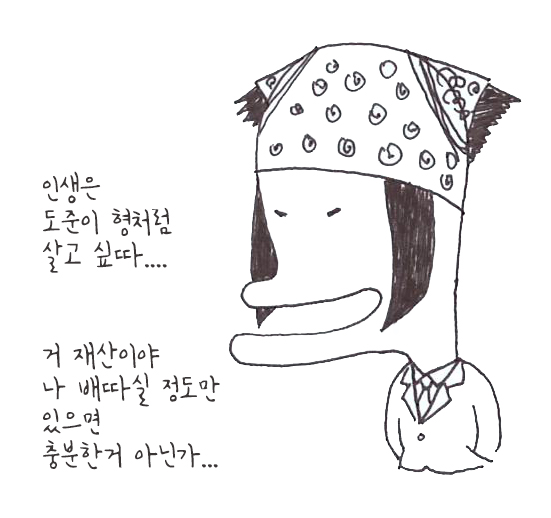 인생은
도준이 형처럼
살고 싶따....
거 재산이야
나 배따실 정도만
있으면
충분한거 아닌가...